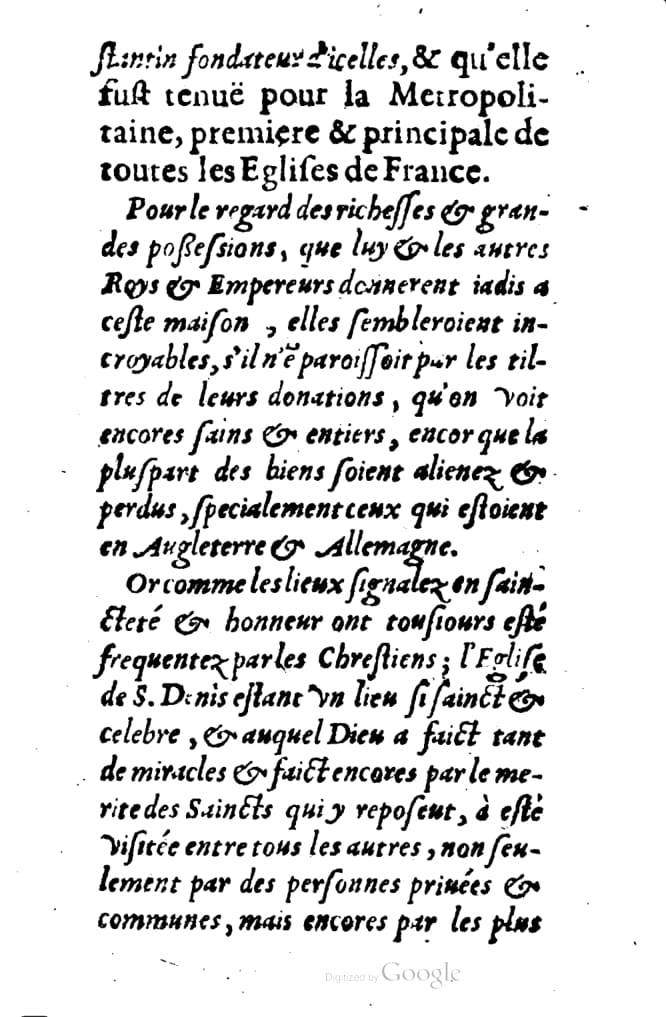 ſtantin fondateur d'icelles, & qu'elle
fuſt tenuë pour la Metropoli-
taine, premiere & principale de
toutes les Egliſes de France.
Pour le regard des richeſſes & gran-
des poßeſsions, que luy & les autres
Roys & Empereurs donnerent iadis a
ceſte maiſon , elles ſembleroient in-
croyables, s'il n'ē paroiſſoit par les til-
tres de leurs donations, qu'on voit
encores ſains & entiers, encor que la
pluſpart des biens ſoient alienez &
perdus, ſpecialement ceux qui eſtoient
en Augleterre & Allemagne.
Or comme les lieux ſignalez en ſain-
cteté & honneur ont touſiours eſté
frequentez par les Chreſtiens; l'Egliſe
de S. Denis eſtant vn lieu ſi ſainct &
celebre, & auquel Dieu a faict tant
de miracles & faict encores par le me-
rite des Saincts qui y repoſeut, à eſté
viſitée entre tous les autres, non ſeu-
lement par des perſonnes priuées &
communes, mais encores par les plus
Digitized by Google